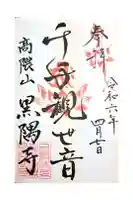 奉拝
令和六年
四月廿日
千手観世音
高隈山
黒隅寺